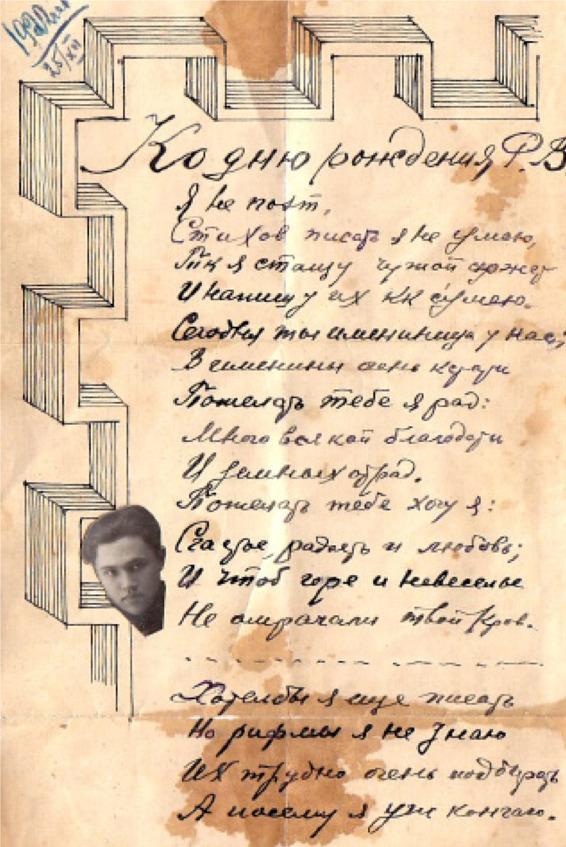 25/XII
Ко дню рождения Р. В
Я не поэт,
Стихов писать я не умею,
Так я стащу чужой сюжет
И напишу их кк сумею.
Сегодня ты именинница у нас,
В именины очень кстати
Пожелать тебе я рад:
Много всякой благодати
И земных отрад.
Пожелать тебе хочу я:
Счастье, радость и любовь;
И чтоб горе и невеселье
Не омрачали твой кров.
Хотелбы я еще писать
Но рифмы я не знаю
Их трудно очень подбирать
А посему я уж кончаю.